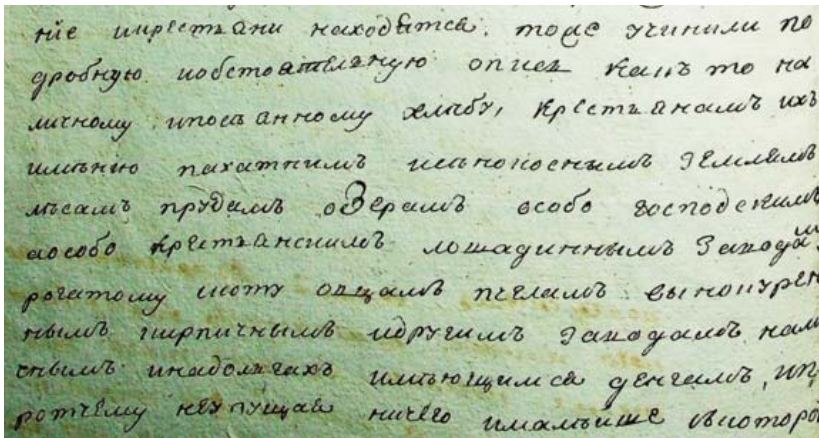 ние икрестьяни находятса, тоде учинили по
дробную иобстоятелную опись какъ то на
личному ипосѣянному хлѣбу, крестьянамъ ихъ
имѣнию пахатнимъ исѣнокоснымъ землямъ
лѣсамъ прудамъ озерамъ особо господскимъ
аособо крестьянскимъ лошадиннымъ заводам
рогатому скоту овцамъ пчеламъ винокурен
нымъ кирпичнымъ идругимъ заводамъ нали
снымъ инадолгахъ имѣющимся денгамъ, ип
ротчему неупущая ничего ималѣйше вкоторо